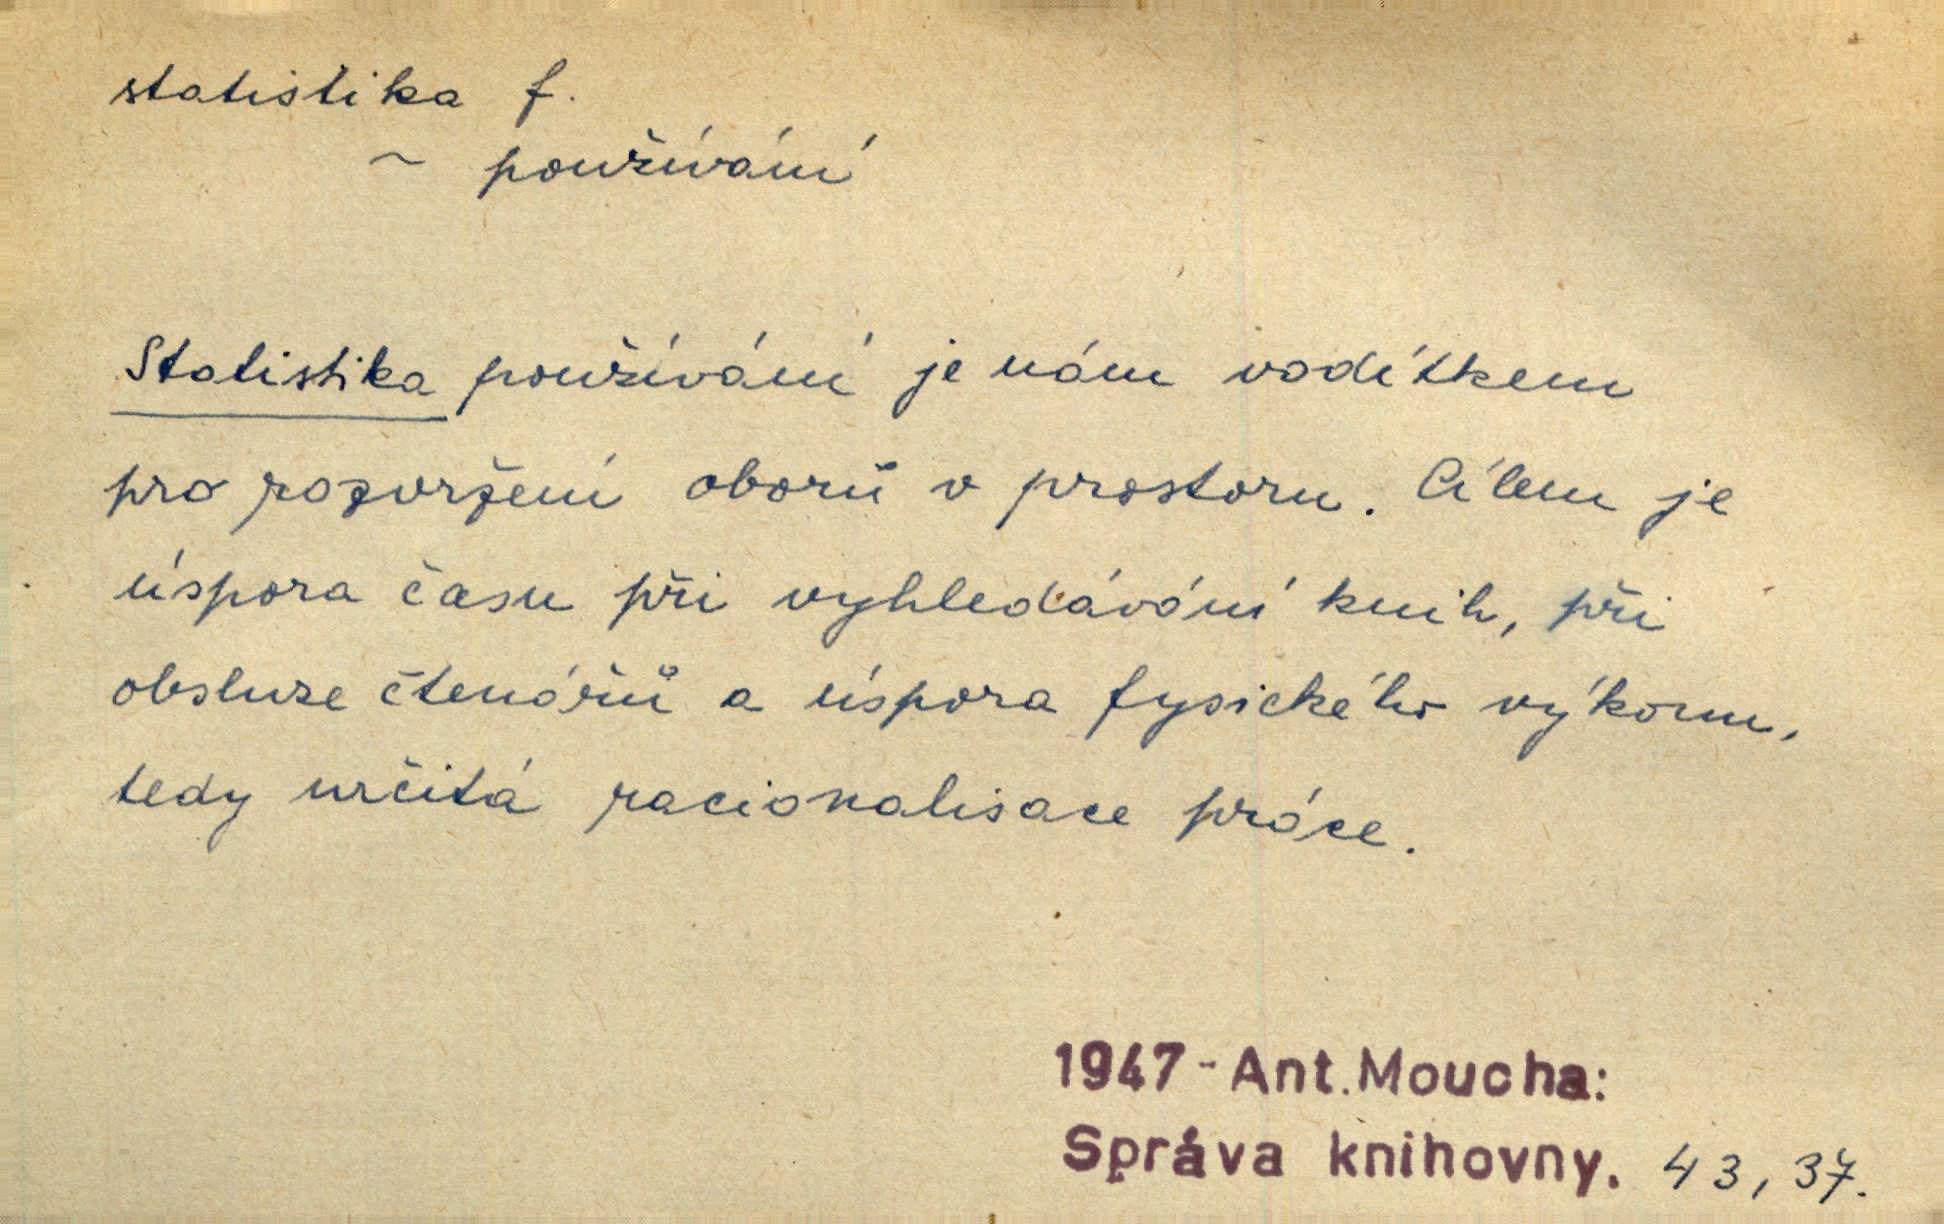 statistika f.
~ používání
Statistika používání je nám vodítkem
pro rozvržení oborů v prostoru. Cílem je
úspora času při vyhledávání knih, při
obsluze čtenářů a úspora fysického výkonu,
tedy určitá racionalisace práce.
1947 - Ant. Moucha:
Správa knihovny. 43, 37.